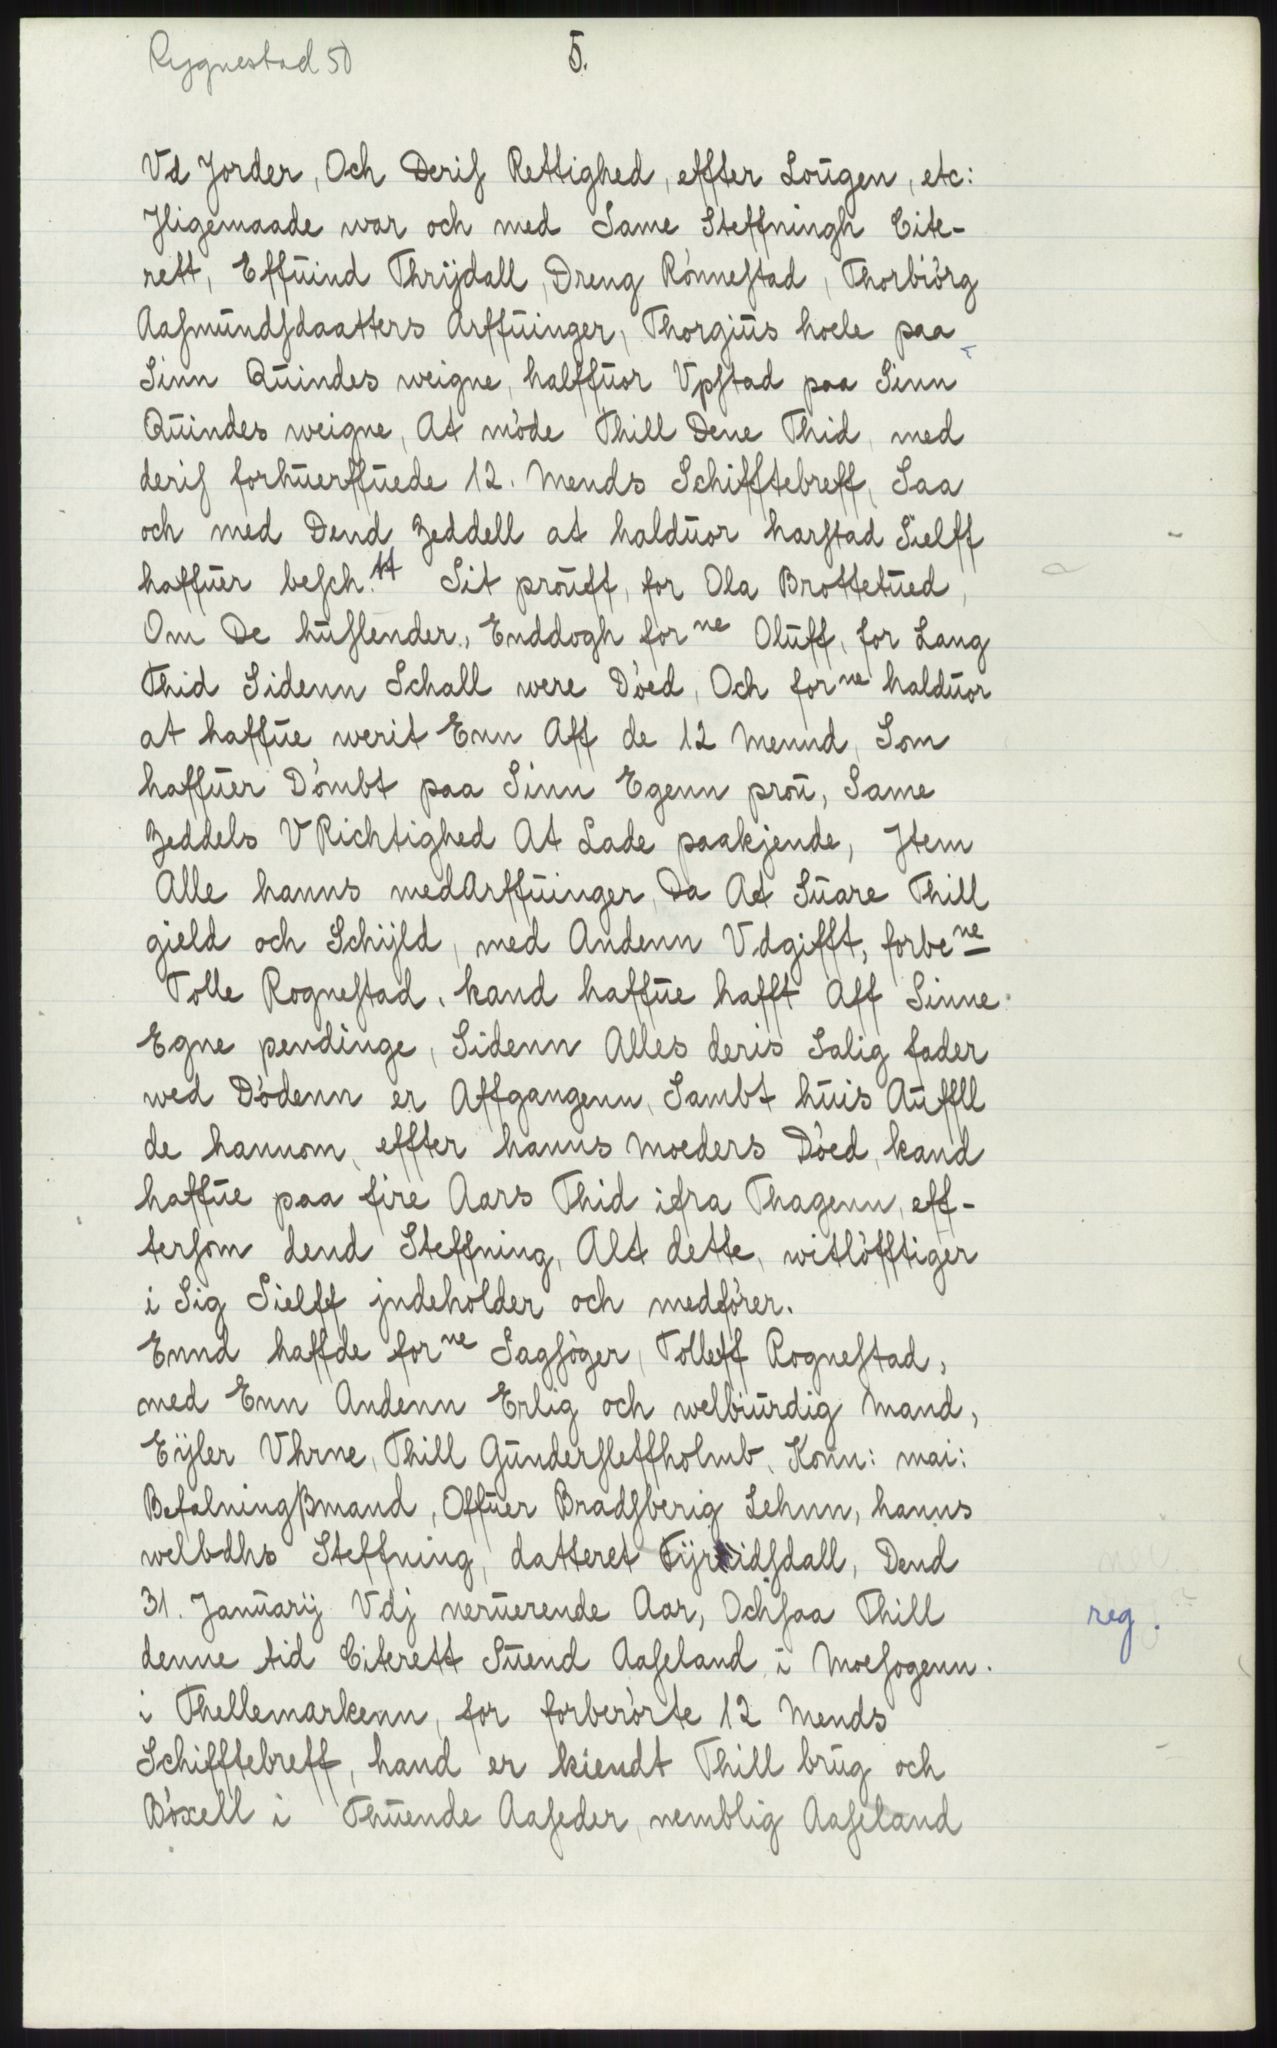 Rygnestad 50
5.
Vd Jorder, Och Deris Rettighed, effter Lougen, etc:
Jligemaade war och med Same Steffningh Cite-
rett, Effuind Thrijdall, Dreng Rónnestad, Thorbiórg
Aasmundsdaatters Arffuinger, Thorgius hoele paa
Sinn Quindes weigne, halffuor Vpstad paa Sinn
Quindes weigne, At móde Thill Dene Thid, med
deris forhuerffuede 12. Mends Schifftebreff, Saa
och med Dend Zeddell at halduor harstad Sielff
haffuer besch. tt Sit prouff, for Ola Brottetued,
Om De huslender, Enddogh for ne Oluff, for Lang
Thid Sidenn Schall were Dóed, Och for ne halduor
at haffue werit Enn Aff de 12 Mennd, Som
haffuer Dómbt paa Sinn Egenn prou, Same
Zeddels VRichtighed At Lade paakjende, Jtem
Alle hanns medArffuinger, Da At Suare Thill
gield och Schijld, med Andenn Vdgifft, forbe ne
Tolle Rognestad, kand haffue hafft Aff Sinne
Egne pendinge, Sidenn Alles deris Salig fader
wed Dódenn er Affgangenn, Sambt huis Auffll
de hannom, effter hanns Moeders Dóed, kand
haffue paa fire Aars Thid ifra Thagenn, eff-
tersom dend Steffning, Alt dette, witlófftiger
i Sig Sielff jndeholder och medfórer.
Ennd haffde for ne Sagsóger, Tolleff Rognestad,
med Enn Andenn Erlig och welbiurdig Mand,
Eijler Vhrne, Thill Gundersleffholmb, Konn: mai:
Befalningßmand, Offuer Bradsberig Lehnn, hanns
welbdhs Steffning, datteret Cijridsdall, Dend
31. Januarij Vdj neruerende Aar, Ochsaa Thill
reg.
denne tid Citerett Suend Aaseland i Moesogenn
i Thellemarkenn, for forberórte 12 Mends
Schifftebreff, hand er kiendt Thill brug och
Bóxell i Thuende Aaseder, nemblig Aaseland